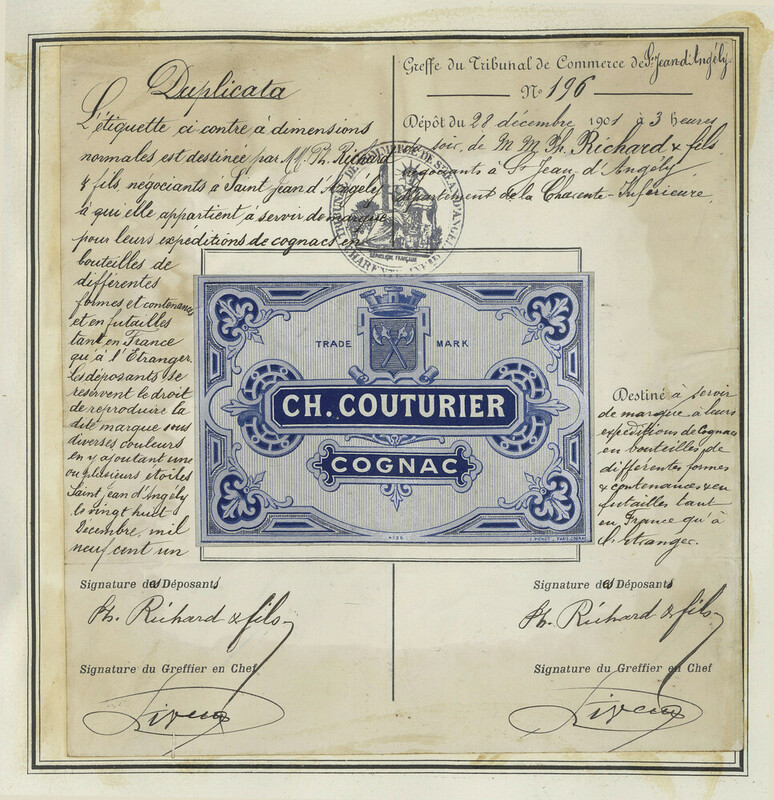 Duplicata
L'étiquette ci contre à dimensions
normales est destinée par MM. Ph. Richard
& fils, négociants à Saint Jean d'Angély
à qui elle appartient à servir de marque
pour leurs expéditions de cognacs en
bouteilles de
différentes
formes et contenances
et en futailles
tant en France
qu'à l'Etranger.
Les déposants se
réservent le droit
de reproduire la
dite marque sous
diverses couleurs
en y ajoutant une
ou plusieurs étoiles
Saint Jean d'Angély
le vingt huit
Décembre, mil
neuf cent un
Greffe du Tribunal de Commerce de St Jean d'Angély
No 196
Dépôt du 28 décembre 1901 à 3 heures
soir, de MM. Ph. Richard & fils
négociants à St Jean d'Angély
département de la Charente-Inférieure.
TRIBUNAL DE COMMERCE DE ST JEAN D'ANGELY
CHARENTE INFRE
REPUBLIQUE FRANÇAISE
TRADE MARK
CH. COUTURIER
COGNAC
Destiné à servir
de marque à leurs
expéditions de Cognacs
en bouteilles de
différentes formes
& contenances & en
futailles tant
en France qu'à
l'étranger.
Signature des Déposants
Ph. Richard & fils
Signature du Greffier en Chef
Signature des Déposants
Ph. Richard & fils
Signature du Greffier en Chef